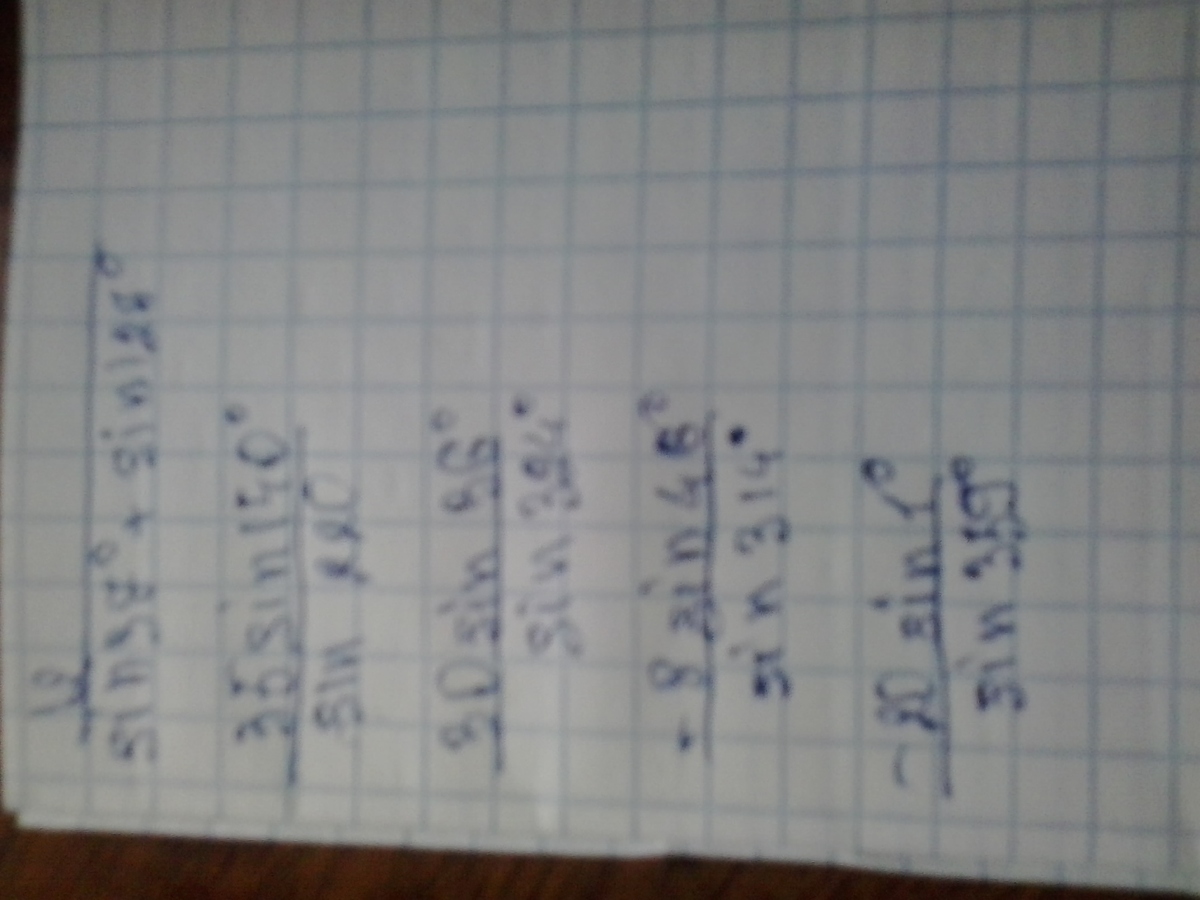 12
sin + sin
35 sin 140°
sin 220
sin 36°
sin 324°
- 8 sin 46°
sin 314°
- 20 sin 1°
sin 359°